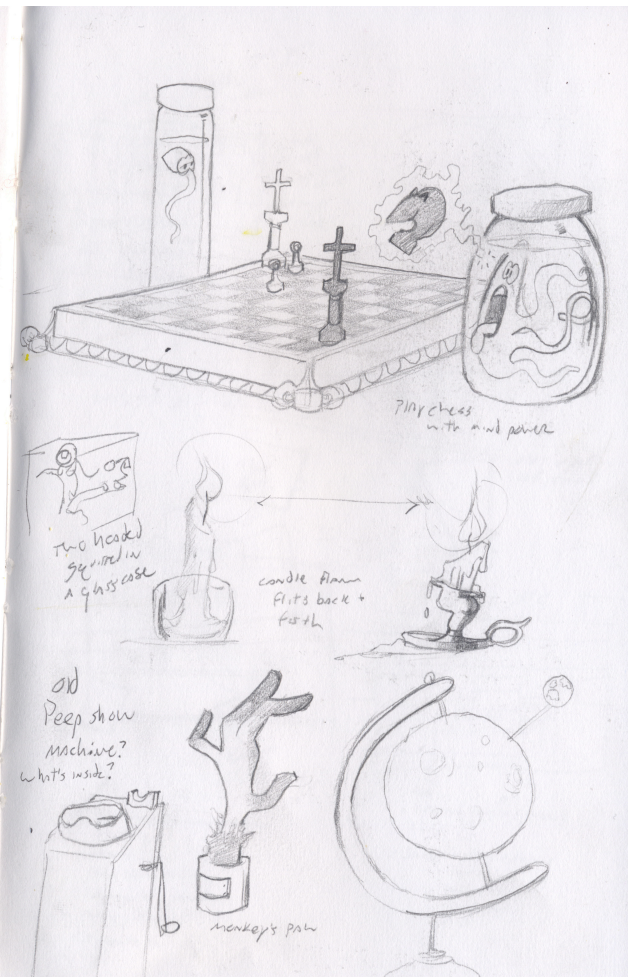 Play chess
with mind power
Two headed
squirrel in
a glass case
candle flame
flits back +
forth
old
Peep show
machine?
what's inside?
monkey's paw